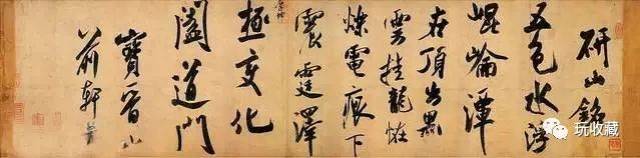 研山銘
五色水浮
崐崘潭
在頂出黑
雲挂龍恠
爍電痕下
震霆澤
極變化
闔道門
寶晉山
前軒書
玩收藏